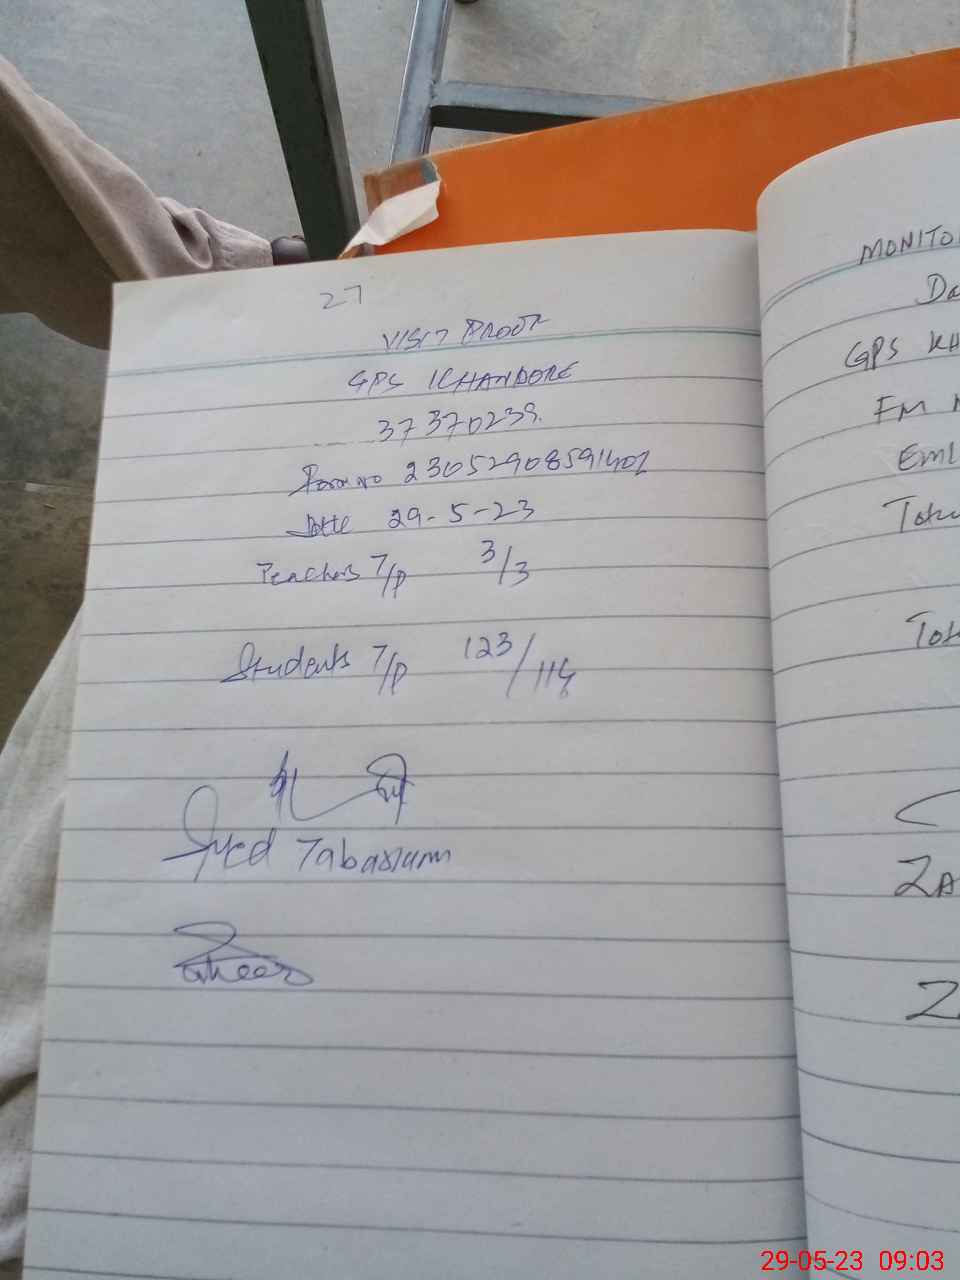 27
VISIT PROOF
GPS KHANDORE
37370239
Form no 23052908591402
Date 29-5-23
Teachers T/P 3/3
Students T/P 123/114
Syed Tabassum
Zaheer
MONITO
Da
GPS KH
EML
Tot
ZA
29-05-23 09:03